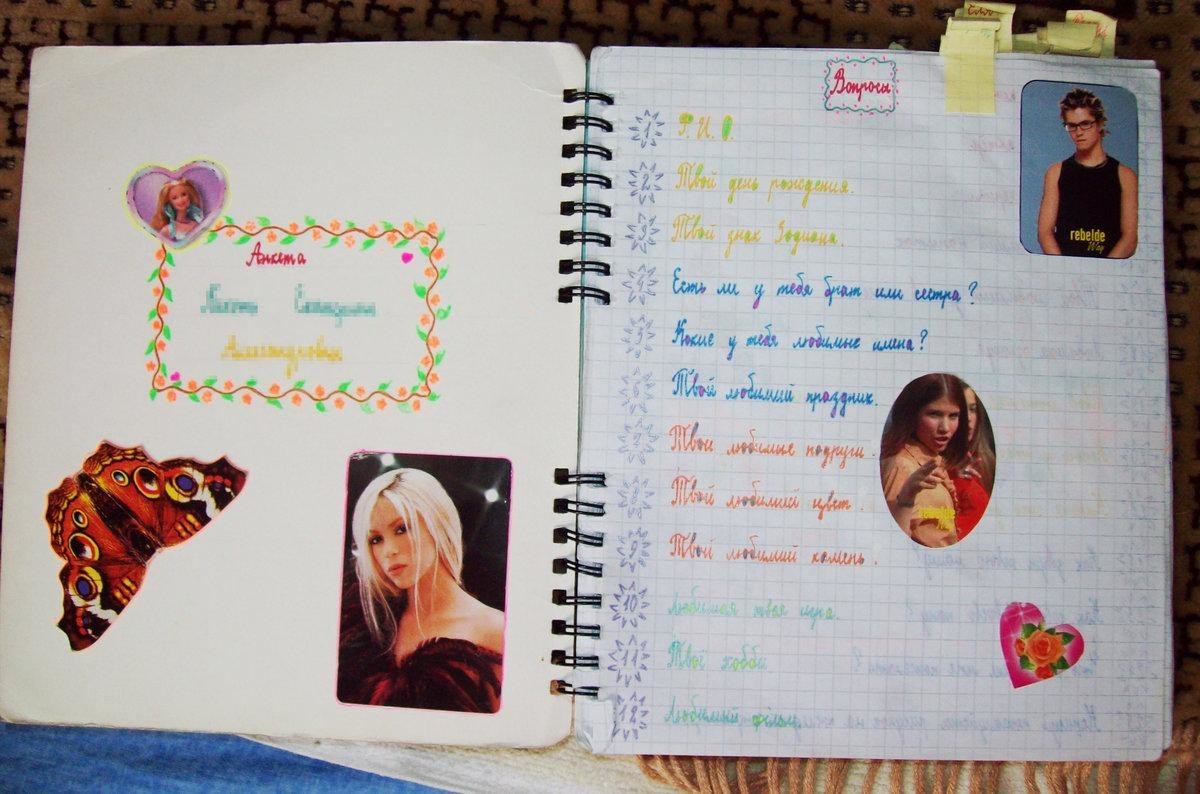 Анкета
Вопросы
1 Ф. И. О.
2 Твой день рождения.
3 Твой знак Зодиака.
4 Есть ли у тебя брат или сестра?
5 Какие у тебя любимые имена?
6 Твой любимый праздник.
7 Твои любимые подруги.
8 Твой любимый цвет.
9 Твой любимый камень.
10 Любимая твоя игра.
11 Твоё хобби
12 Любимый фильм.
rebelde
Way